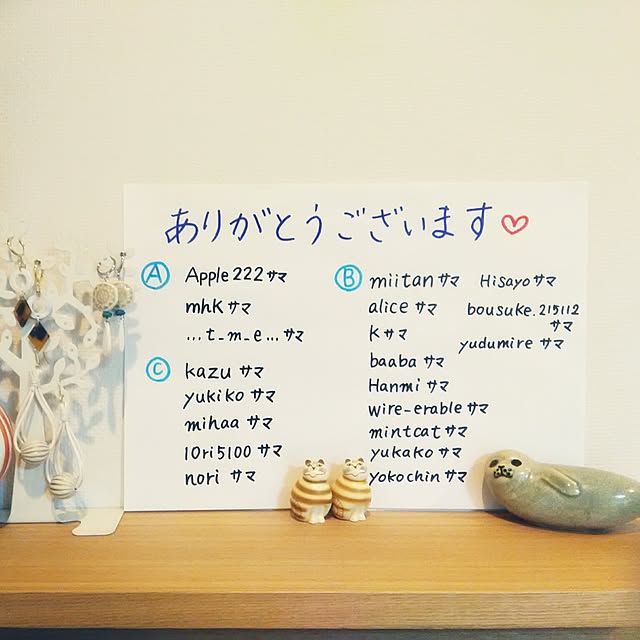 ありがとうございます♡
Ⓐ Apple222サマ
mhkサマ
...t_m_e...サマ
Ⓒ kazuサマ
yukikoサマ
mihaaサマ
10ri5100サマ
noriサマ
Ⓑ miitanサマ
aliceサマ
Kサマ
baabaサマ
Hanmiサマ
wire-erableサマ
mintcatサマ
yukakoサマ
yokochinサマ
Hisayoサマ
bousuke.215112
サマ
yudumireサマ